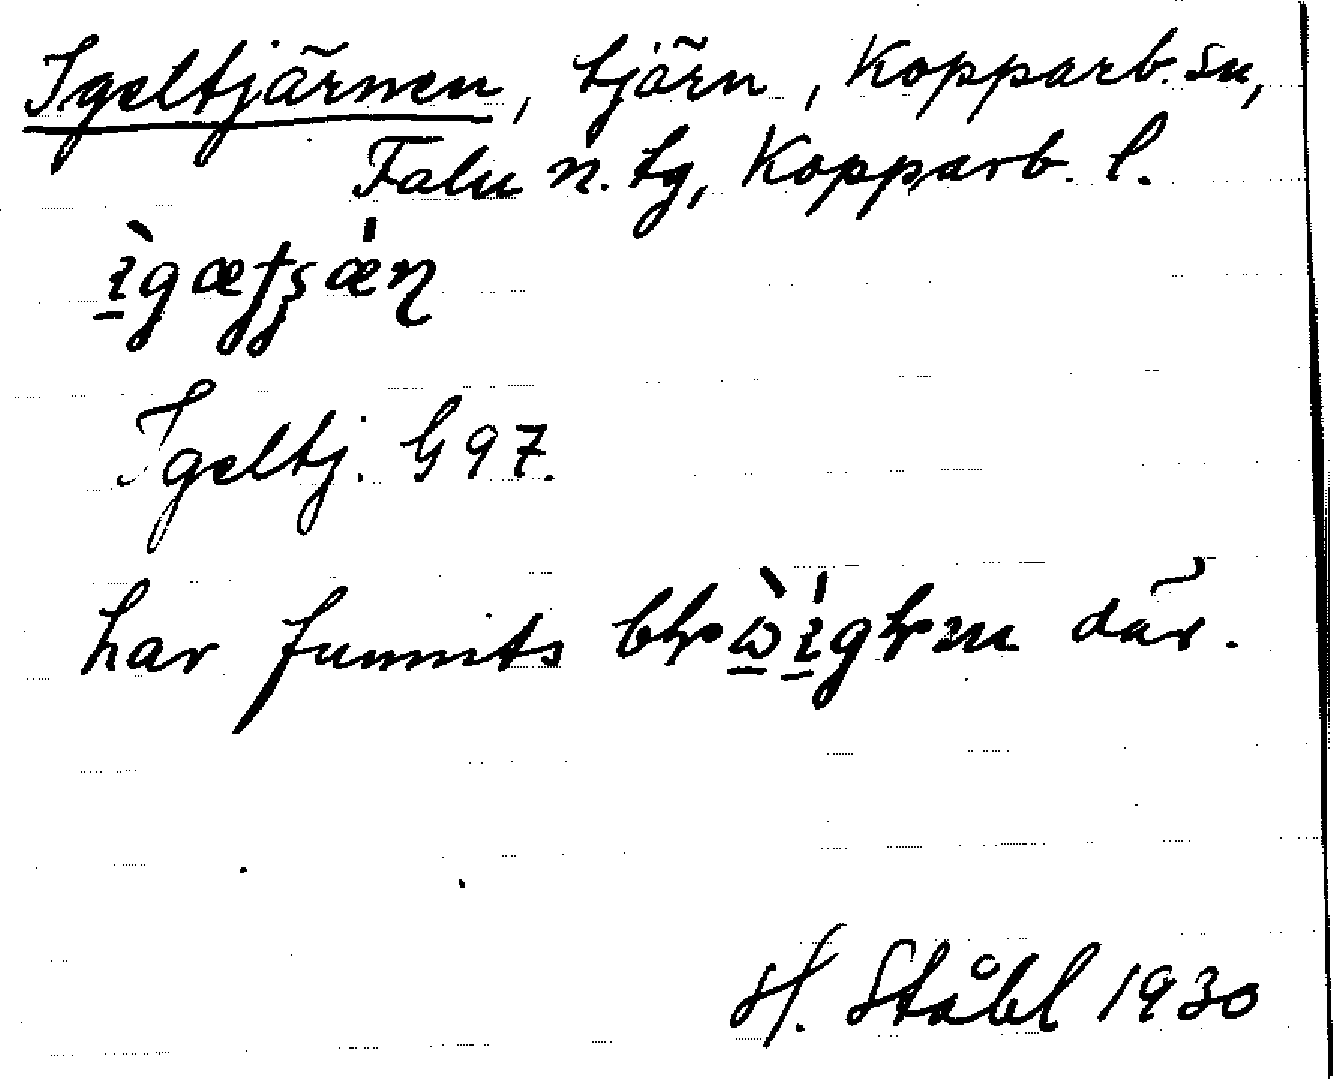 Igeltjärnen, tjärn, Kopparb. sn,
Falu n. tg, Kopparb. l.
Igeltj. G 97.
har funnits där.
H. Ståhl 1930